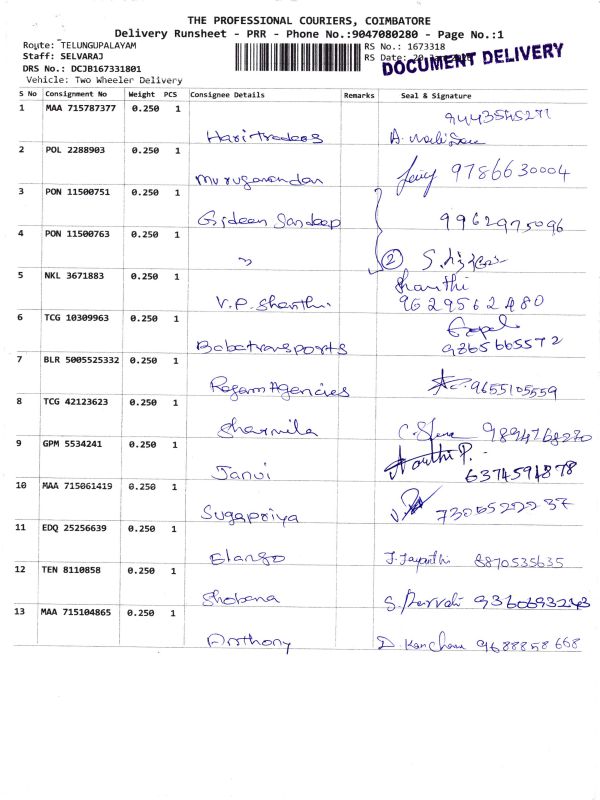 THE PROFESSIONAL COURIERS, COIMBATORE
Delivery Runsheet - PRR - Phone No.:9047080280 - Page No.:1
Route: TELUNGUPALAYAM
RS No.: 1673318
Staff: SELVARAJ
RS Date:
DOCUMENT DELIVERY
DRS No.: DCJB167331801
Vehicle: Two Wheeler Delivery
S No Consignment No Weight PCS Consignee Details Remarks Seal & Signature
1 MAA 715787377 0.250 1
Haritraders
2 POL 2288903 0.250 1
Muruganandan 9786630004
3 PON 11500751 0.250 1
Gideon Sandeep 9962975096
4 PON 11500763 0.250 1
" 2
5 NKL 3671883 0.250 1 Shanthi
V.P. Shanthi 9629562480
6 TCG 10309963 0.250 1 Gopal
Bobatransports 9865665572
7 BLR 5005525332 0.250 1
Agencies 9655105559
8 TCG 42123623 0.250 1
Sharmila 9894768270
9 GPM 5534241 0.250 1 Aarthi P.
Janvi 6374591878
10 MAA 715061419 0.250 1
Sugapriya 7305522237
11 EDQ 25256639 0.250 1
Elango J. Jayanthi 8870535635
12 TEN 8110858 0.250 1
Shobana 9360693243
13 MAA 715104865 0.250 1
Anthony D. Kanchana 9688858668